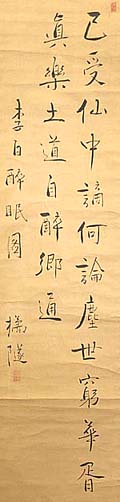 已受仙中謫何論塵世窮華胥
真樂土道自醉鄉通
李白醉眠圖